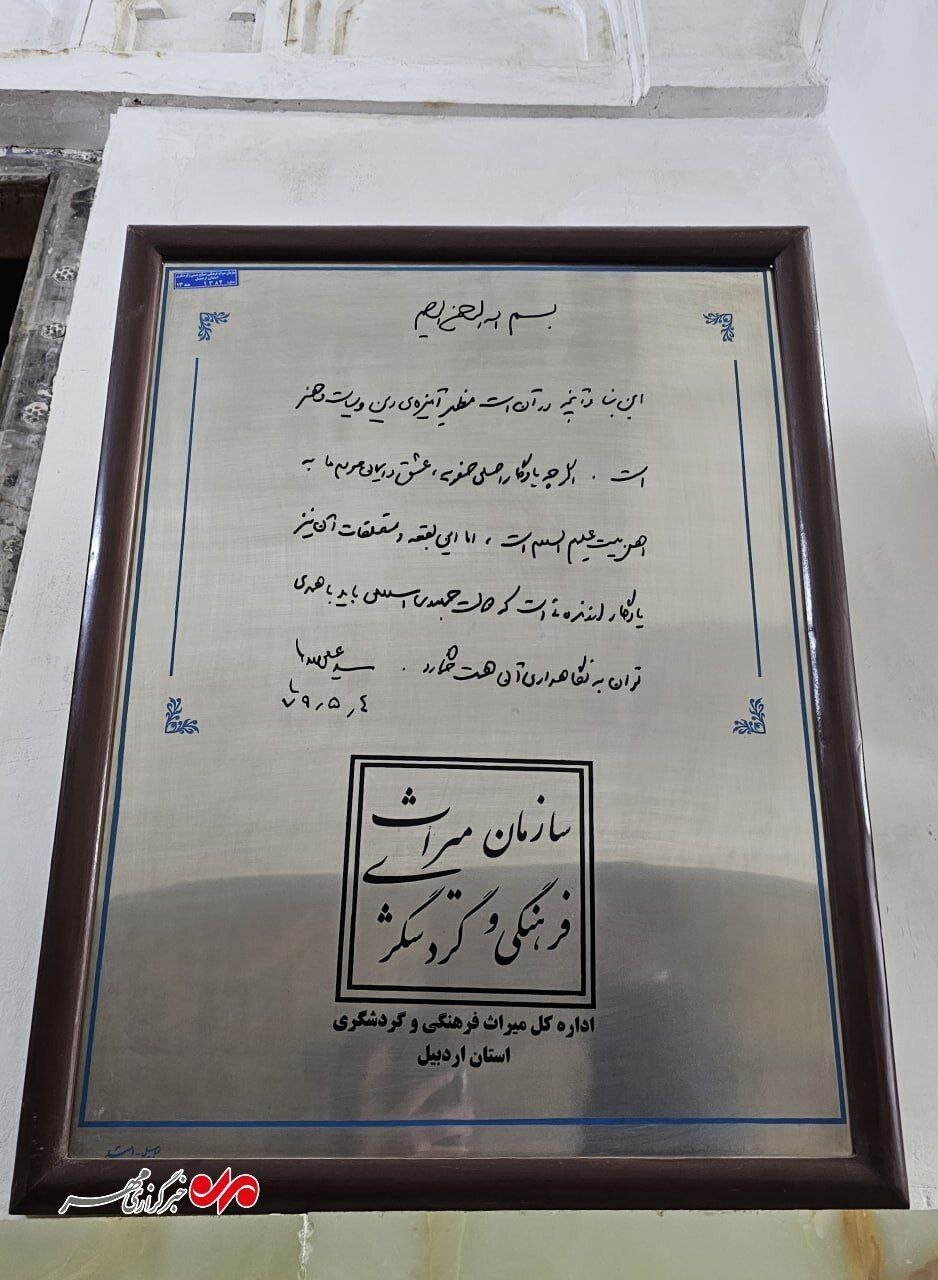 سازمان میراث فرهنگی، صنایع دستی و گردشگری
استان اردبیل
۱۳۸۴
۱۳
بسم الله الرحمن الرحیم
این بنا و آنچه در آن است مظهر آمیزه‌ی دین و سیاست و هنر
است . اگر چه یادگار اصلی صفویه، عشق و ایمان مردم ما به
اهل بیت علیهم السلام است ، اما این بقعه و متعلقات آن نیز
یادگار ارزنده‌ئی است که دولت جمهوری اسلامی باید با همه‌ی
توان به نگاهداری آن همت گمارد .
سید علی خامنه‌ای
۷۹٫۵٫۴
سازمان میراث
فرهنگی و گردشگری
اداره کل میراث فرهنگی و گردشگری
استان اردبیل
خبرگزاری مهر